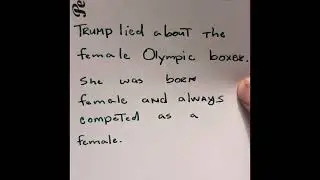 Pe
TRUMP lied about the
female Olympic boxer.
She was born
female and always
competed as a
female.